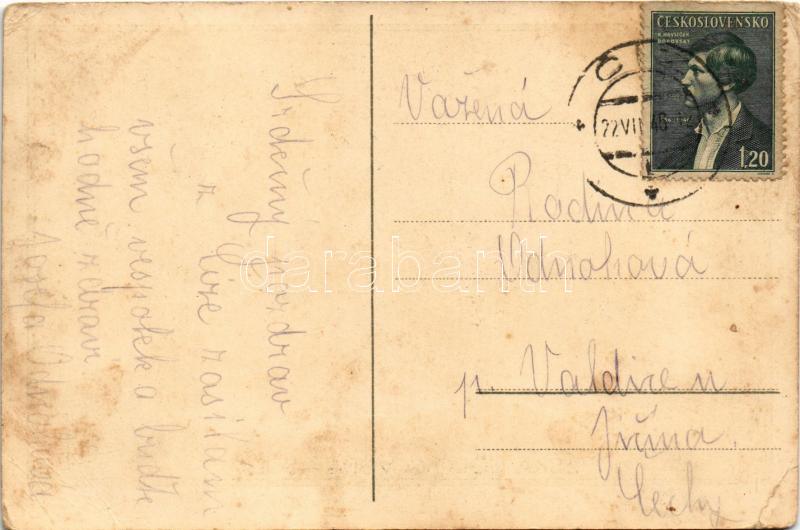 Srdečný pozdrav
z Cíze zasílám
všem vespolek a buďte
hodně zdraví
Josefa
ČESKOSLOVENSKO
K. HAVLÍČEK
BOROVSKÝ
1.20
22 VII 46
Vážená
Rodina
Vdnohová
p. Valdice u
Jičína.
Čechy
darabanth